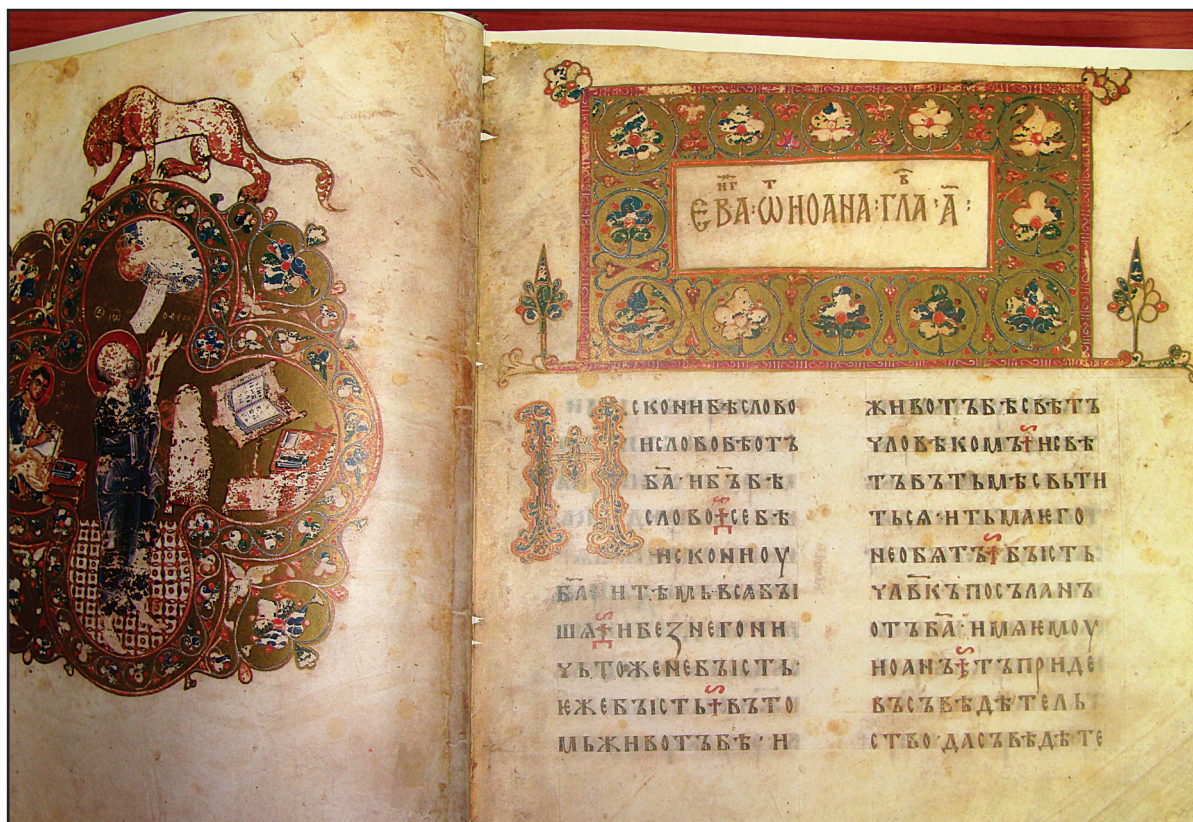 ЕВА҃·Ѡ ИОАНА·ГЛА·А҃·
ИСКОНИБѢСЛОВО
ИСЛОВОБѢОТЪ
БА҃·ИБ҃ЪБѢ
СЛОВО·СЕБѢ
ИСКОНИОУ
БА҃·ИТѢМЬВСѦБЪІ
ШѦ·ИБЕЗНЕГОНИ
ЧЬТОЖЕНЕБЪІСТЬ·
ѤЖЕБЪІСТЬ·ВЪТО
МЬЖИВОТЪБѢ·И
ЖИВОТЪБѢСВѢТЪ
ЧЛОВѢКОМЪ·ИСВѢ
ТЪВЪТЬМѢСВЬТИ
ТЬСѦ·ИТЬМАѤГО
НЕОБѦТЪ·БЪІСТЬ
ЧЛ҃ВКЪПОСЪЛАНЪ
ОТЪБА҃·ИМѦѤМОУ
ИОАНЪ·ТЪПРИДЕ
ВЪСЪВѢДѢТЕЛЬ
СТВО·ДАСЪВѢДѢТЕ